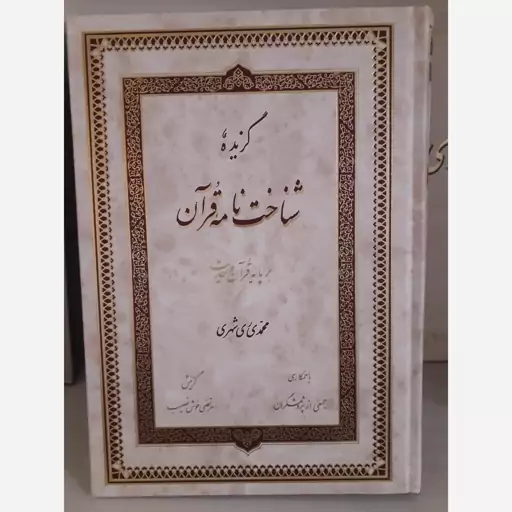 گزیدهٔ
شناخت نامه قرآن
بر پایه قرآن و حدیث
محمدی ری شهری
با همکاری
جمعی از پژوهشگران
گزینش
مرتضی خوش نصیب